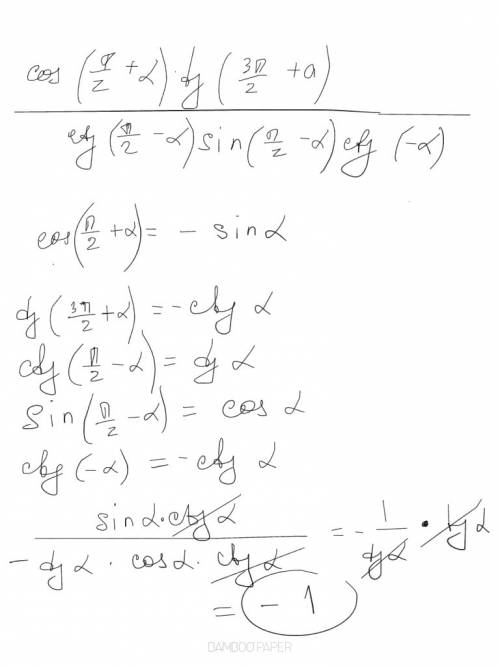 cos (π/2 + α) · tg (3π/2 + a)
ctg (π/2 - α) sin (π/2 - α) ctg (-α)
cos (π/2 + α) = - sin α
tg (3π/2 + α) = - ctg α
ctg (π/2 - α) = tg α
Sin (π/2 - α) = cos α
ctg (-α) = - ctg α
sin α · ctg α / - tg α · cos α · ctg α = - 1/tg α · tg α
= - 1
BAMBOOPAPER